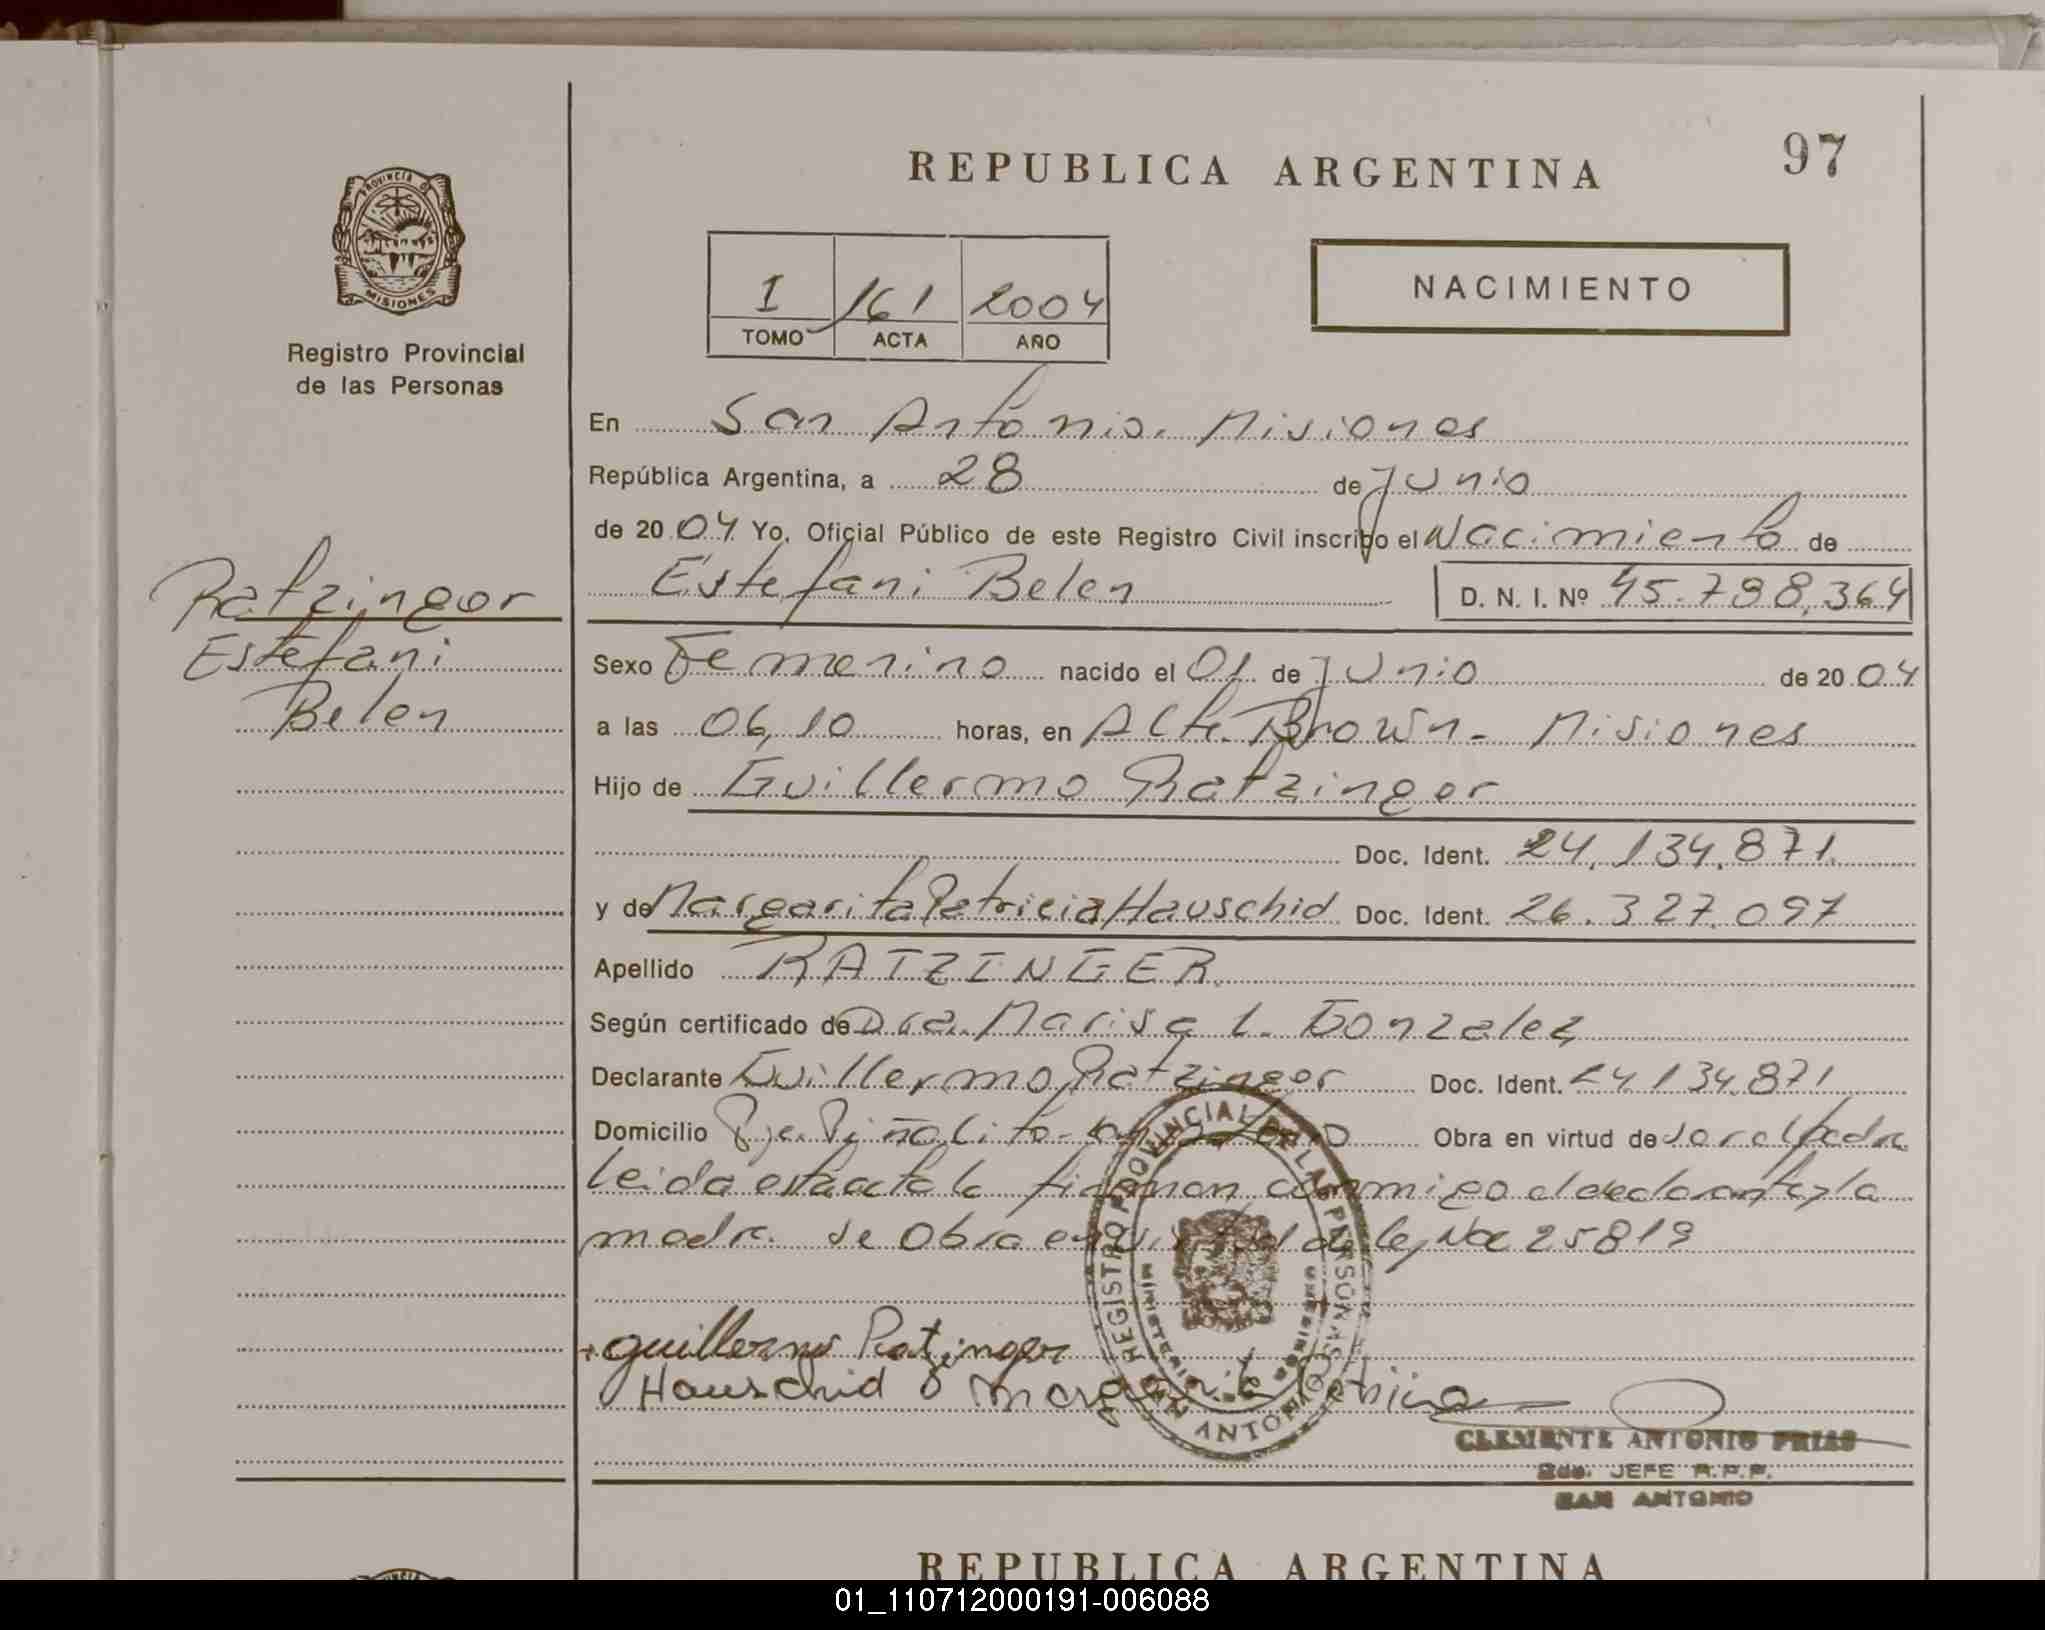 REPUBLICA ARGENTINA
97
PROVINCIA DE
MISIONES
Registro Provincial
de las Personas
I 161 2004
TOMO ACTA AÑO
NACIMIENTO
En San Antonio. Misiones
República Argentina, a 28 de Junio
de 2004 Yo, Oficial Público de este Registro Civil inscribo el Nacimiento de
Estefani Belen D. N. I. Nº 45.798,364
Ratzinger
Estefani
Belen
Sexo Femenino nacido el 01 de Junio de 2004
a las 06,10 horas, en Alte. Brown - Misiones
Hijo de Guillermo Ratzinger
Doc. Ident. 24.134.871
y de Margarita Patricia Hauschid Doc. Ident. 26.327.097
Apellido RATZINGER
Según certificado de Dra. Marisa L. Gonzalez
Declarante Guillermo Ratzinger Doc. Ident. 24.134.871
Domicilio Pje. Piñalito - San Antonio Obra en virtud de ser el padre
leida esta acta la firman conmigo el declarante y la
madre. se obra en virtud de ley Nº 25819
REGISTRO PROVINCIAL DE LAS PERSONAS
SAN ANTONIO
guillermo Ratzinger
Hauschid Margarita Patricia
CLEMENTE ANTONIO FRIAS
2do. JEFE R.P.P.
SAN ANTONIO
REPUBLICA ARGENTINA
01_110712000191-006088